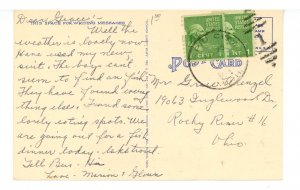 Dear Grace's -
THIS SPACE FOR WRITING MESSAGES
Well the
weather is lovely now
Have used my new
suit. The boys can't
seem to find fish
They have found every
thing else. Found some
lovely eating spots. We
are going out for a fish
dinner today. lake trout.
Tell Bev. Hi
Love - Marion & Glenn
1.50
UNITED STATES
POSTAGE
1 CENT 1
POST CARD
Mrs Grace Wenzel
19063 Inglewood Dr.
Rocky River #16
Ohio.